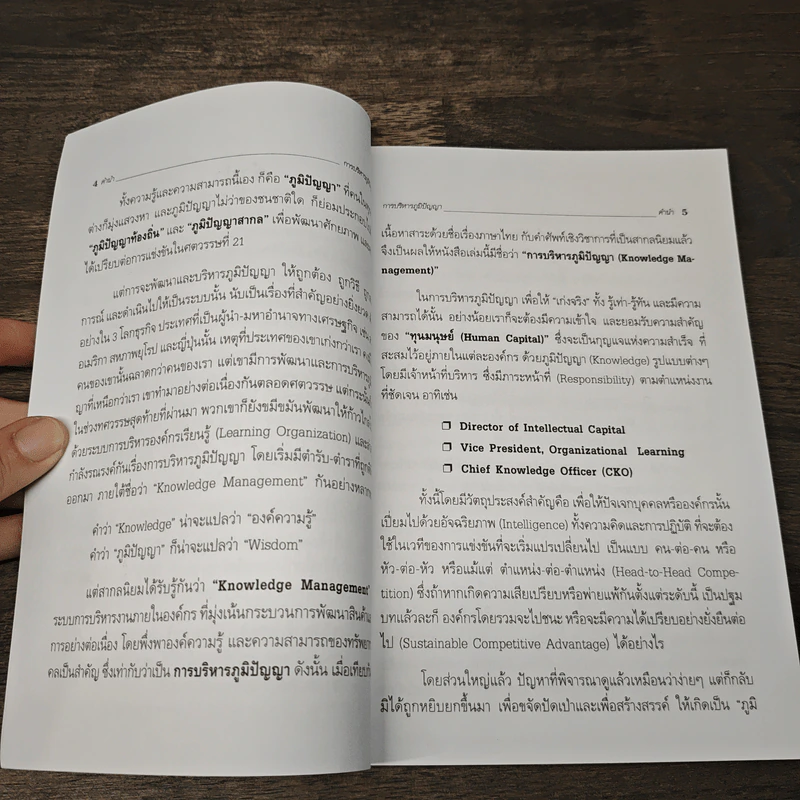 4 คำนำ
ทั้งความรู้และความสามารถนี้เอง ก็คือ “ภูมิปัญญา” ที่คนใน
ต่างก็มุ่งแสวงหา และภูมิปัญญาไม่ว่าของชนชาติใด ก็ย่อมประกอบ
“ภูมิปัญญาท้องถิ่น” และ “ภูมิปัญญาสากล” เพื่อพัฒนาศักยภาพ
ได้เปรียบต่อการแข่งขันในศตวรรษที่ 21
แต่การจะพัฒนาและบริหารภูมิปัญญา ให้ถูกต้อง ถูกวิธี
การณ์ และดำเนินไปให้เป็นระบบนั้น นับเป็นเรื่องที่สำคัญอย่างยิ่งยวด
อย่างใน 3 โลกธุรกิจ ประเทศที่เป็นผู้นำ-มหาอำนาจทางเศรษฐกิจ เช่น
อเมริกา สหภาพยุโรป และญี่ปุ่นนั้น เหตุที่ประเทศของเขาเก่งกว่าเรา
คนของเขานั้นฉลาดกว่าคนของเรา แต่เขามีการพัฒนาและการบริหาร
ญาที่เหนือกว่าเรา เขาทำมาอย่างต่อเนื่องกันตลอดศตวรรษ
ในช่วงทศวรรษสุดท้ายที่ผ่านมา พวกเขาก็ยังขมีขมันพัฒนาให้ก้าว
ด้วยระบบการบริหารองค์กรเรียนรู้ (Learning Organization) และ
กำลังรณรงค์กันเรื่องการบริหารภูมิปัญญา โดยเริ่มมีตำรับ-ตำราที่ถูก
ออกมา ภายใต้ชื่อว่า “Knowledge Management” กันอย่าง
คำว่า “Knowledge” น่าจะแปลว่า “องค์ความรู้”
คำว่า “ภูมิปัญญา” ก็น่าจะแปลว่า “Wisdom”
แต่สากลนิยมได้รับรู้กันว่า “Knowledge Management”
ระบบการบริหารงานภายในองค์กร ที่มุ่งเน้นกระบวนการพัฒนาสินค้า
การอย่างต่อเนื่อง โดยพึ่งพาองค์ความรู้ และความสามารถของทรัพยา
คลเป็นสำคัญ ซึ่งเท่ากับว่าเป็น การบริหารภูมิปัญญา ดังนั้น เมื่อเทียบ
การบริหารภูมิปัญญา
คำนำ 5
เนื้อหาสาระด้วยชื่อเรื่องภาษาไทย กับคำศัพท์เชิงวิชาการที่เป็นสากลนิยมแล้ว
จึงเป็นผลให้หนังสือเล่มนี้มีชื่อว่า “การบริหารภูมิปัญญา (Knowledge Ma-
nagement)”
ในการบริหารภูมิปัญญา เพื่อให้ “เก่งจริง” ทั้ง รู้เท่า-รู้ทัน และมีความ
สามารถได้นั้น อย่างน้อยเราก็จะต้องมีความเข้าใจ และยอมรับความสำคัญ
ของ “ทุนมนุษย์ (Human Capital)” ซึ่งจะเป็นกุญแจแห่งความสำเร็จ ที่
สะสมไว้อยู่ภายในแต่ละองค์กร ด้วยภูมิปัญญา (Knowledge) รูปแบบต่างๆ
โดยมีเจ้าหน้าที่บริหาร ซึ่งมีภาระหน้าที่ (Responsibility) ตามตำแหน่งงาน
ที่ชัดเจน อาทิเช่น
❐ Director of Intellectual Capital
❐ Vice President, Organizational Learning
❐ Chief Knowledge Officer (CKO)
ทั้งนี้โดยมีวัตถุประสงค์สำคัญคือ เพื่อให้ปัจเจกบุคคลหรือองค์กรนั้น
เปี่ยมไปด้วยอัจฉริยภาพ (Intelligence) ทั้งความคิดและการปฏิบัติ ที่จะต้อง
ใช้ในเวทีของการแข่งขันที่จะเริ่มแปรเปลี่ยนไป เป็นแบบ คน-ต่อ-คน หรือ
หัว-ต่อ-หัว หรือแม้แต่ ตำแหน่ง-ต่อ-ตำแหน่ง (Head-to-Head Compe-
tition) ซึ่งถ้าหากเกิดความเสียเปรียบหรือพ่ายแพ้กันตั้งแต่ระดับนี้ เป็นปฐม
บทแล้วละก็ องค์กรโดยรวมจะไปชนะ หรือจะมีความได้เปรียบอย่างยั่งยืนต่อ
ไป (Sustainable Competitive Advantage) ได้อย่างไร
โดยส่วนใหญ่แล้ว ปัญหาที่พิจารณาดูแล้วเหมือนว่าง่ายๆ แต่ก็กลับ
มิได้ถูกหยิบยกขึ้นมา เพื่อขจัดปัดเป่าและเพื่อสร้างสรรค์ ให้เกิดเป็น “ภูมิ